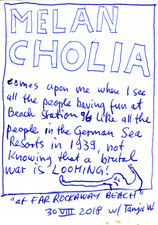 MELAN
CHOLIA
comes upon me when I see
all the people having fun at
Beach Station 96 like all the
people in the German Sea
Resorts in 1939, not
knowing that a brutal
war is LOOMING!
"at FAR ROCKAWAY BEACH"
30 VIII 2018 w/ Tanja W.